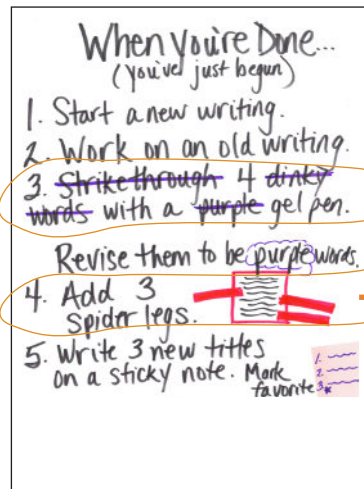 When You're Done...
(you've just begun)
1. Start a new writing.
2. Work on an old writing.
3. Strikethrough 4 dinky
words with a purple gel pen.
Revise them to be purple words.
4. Add 3
spider legs.
5. Write 3 new titles
on a sticky note. Mark
favorite
1.
2.
3.